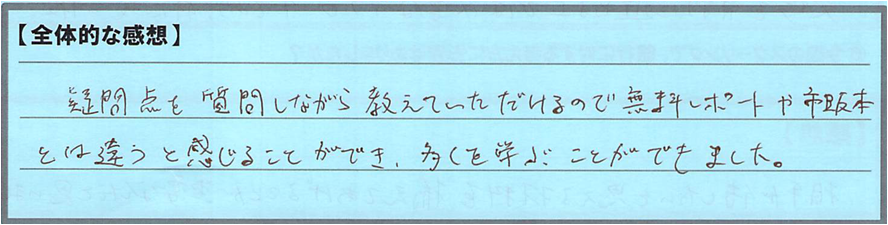 【全体的な感想】
疑問点を質問しながら教えていっただけるので無料レポートや市販本
とは違うと感じることができ、多くを学ぶことができました。